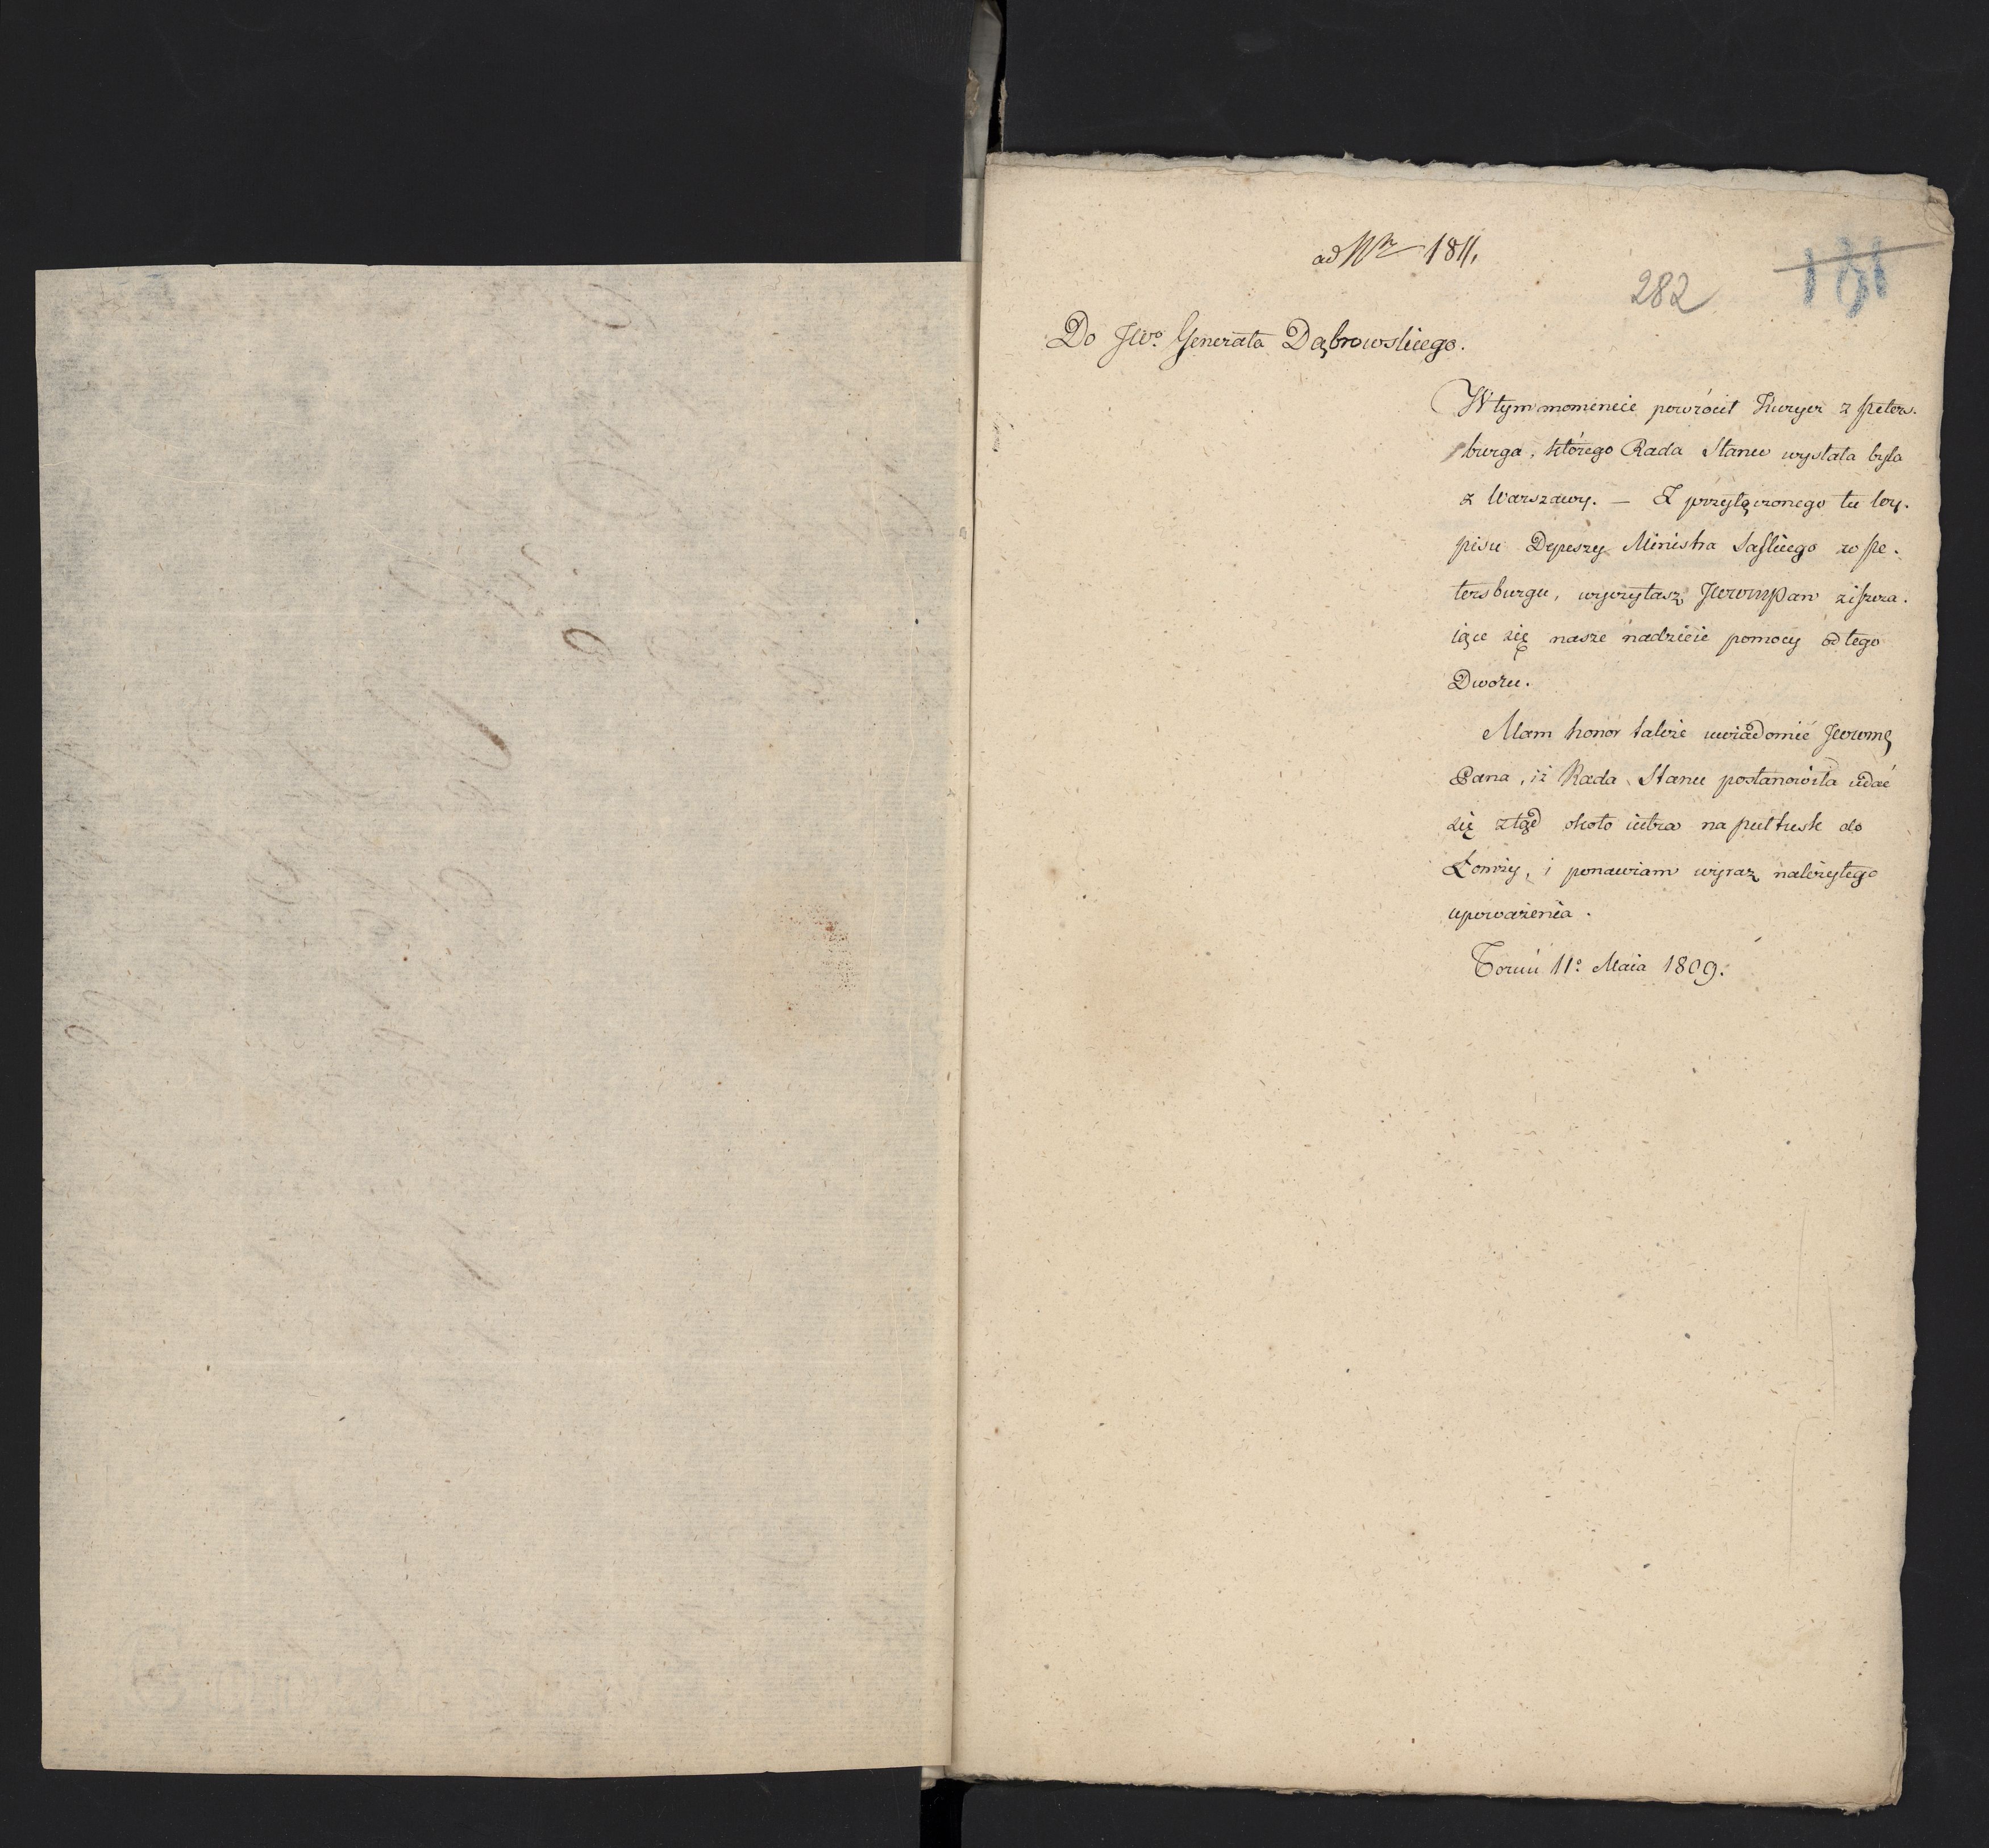 ad Nr 1811.
282
181
Do JWo. Generała Dąbrowskiego.
W tym momencie powrócił Kuryer z Peters-
burga, którego Rada Stanu wysłała była
z Warszawy. — Z przyłączonego tu wy-
pisu Depeszy Ministra Saskiego w Pe-
tersburgu, wyczytasz JWWPan ziszcza-
iące się nasze nadzieie pomocy od tego
Dworu.
Mam honor także uwiadomić
Pana, iż Rada Stanu postanowiła udać
się ztąd około iutra na Pułtusk do
Łomży, i ponawiam wyraz należytego
upoważenia.
Toruń 11o Maia 1809.